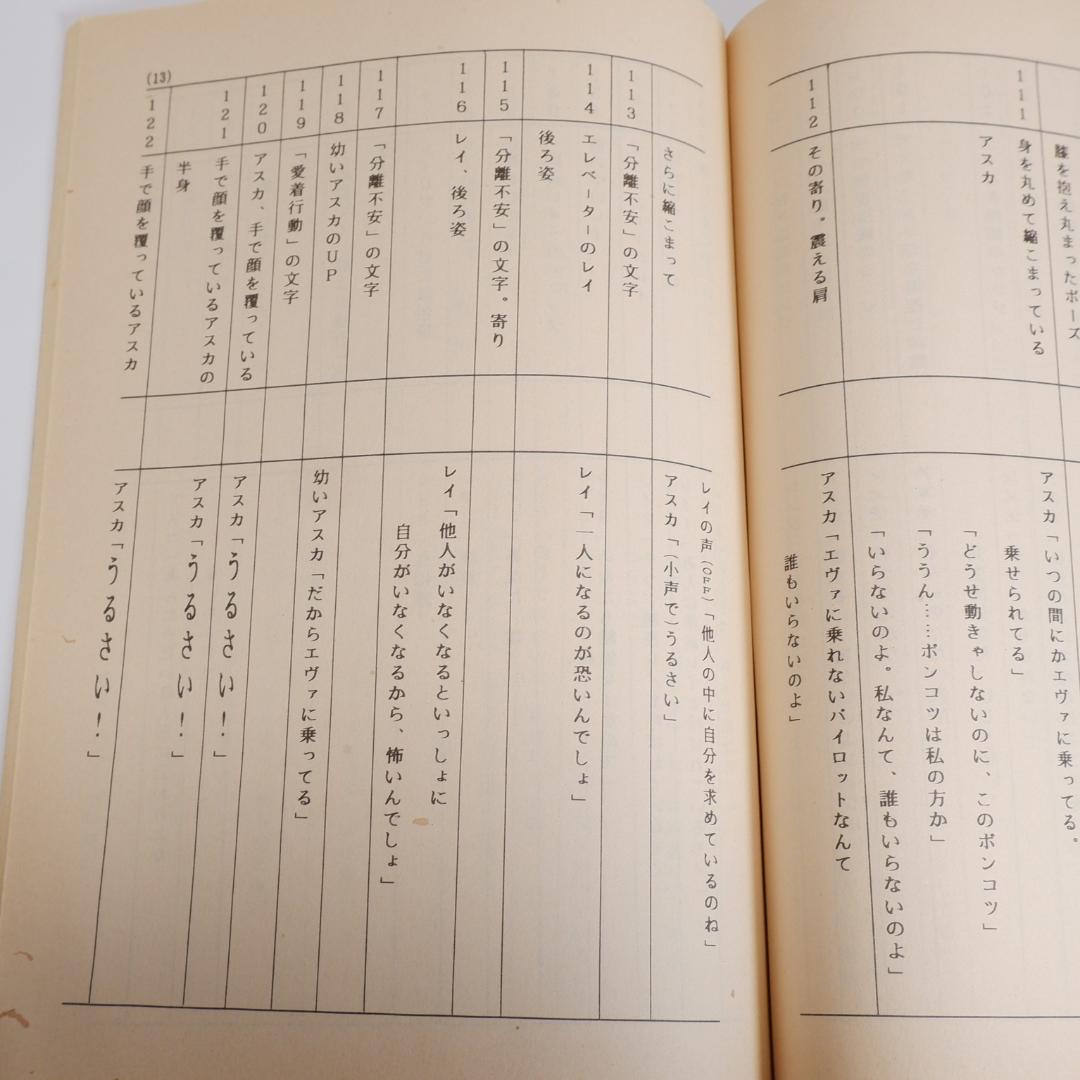 膝を抱え丸まったポーズ
111
身を丸めて縮こまっている
アスカ
アスカ「いつの間にかエヴァに乗ってる。
乗せられてる」
「どうせ動きゃしないのに、このポンコツ」
「ううん……ポンコツは私の方か」
「いらないのよ。私なんて、誰もいらないのよ」
112
その寄り。震える肩
アスカ「エヴァに乗れないパイロットなんて
誰もいらないのよ」
さらに縮こまって
レイの声(OFF)「他人の中に自分を求めているのね」
アスカ「(小声で)うるさい」
113
「分離不安」の文字
114
エレベーターのレイ
後ろ姿
レイ「一人になるのが恐いんでしょ」
115
「分離不安」の文字。寄り
116
レイ、後ろ姿
レイ「他人がいなくなるといっしょに
自分がいなくなるから、怖いんでしょ」
117
「分離不安」の文字
118
幼いアスカのUP
幼いアスカ「だからエヴァに乗ってる」
119
「愛着行動」の文字
120
アスカ、手で顔を覆っている
アスカ「うるさい！」
121
手で顔を覆っているアスカの
半身
アスカ「うるさい！」
122
手で顔を覆っているアスカ
アスカ「うるさい！」
(13)